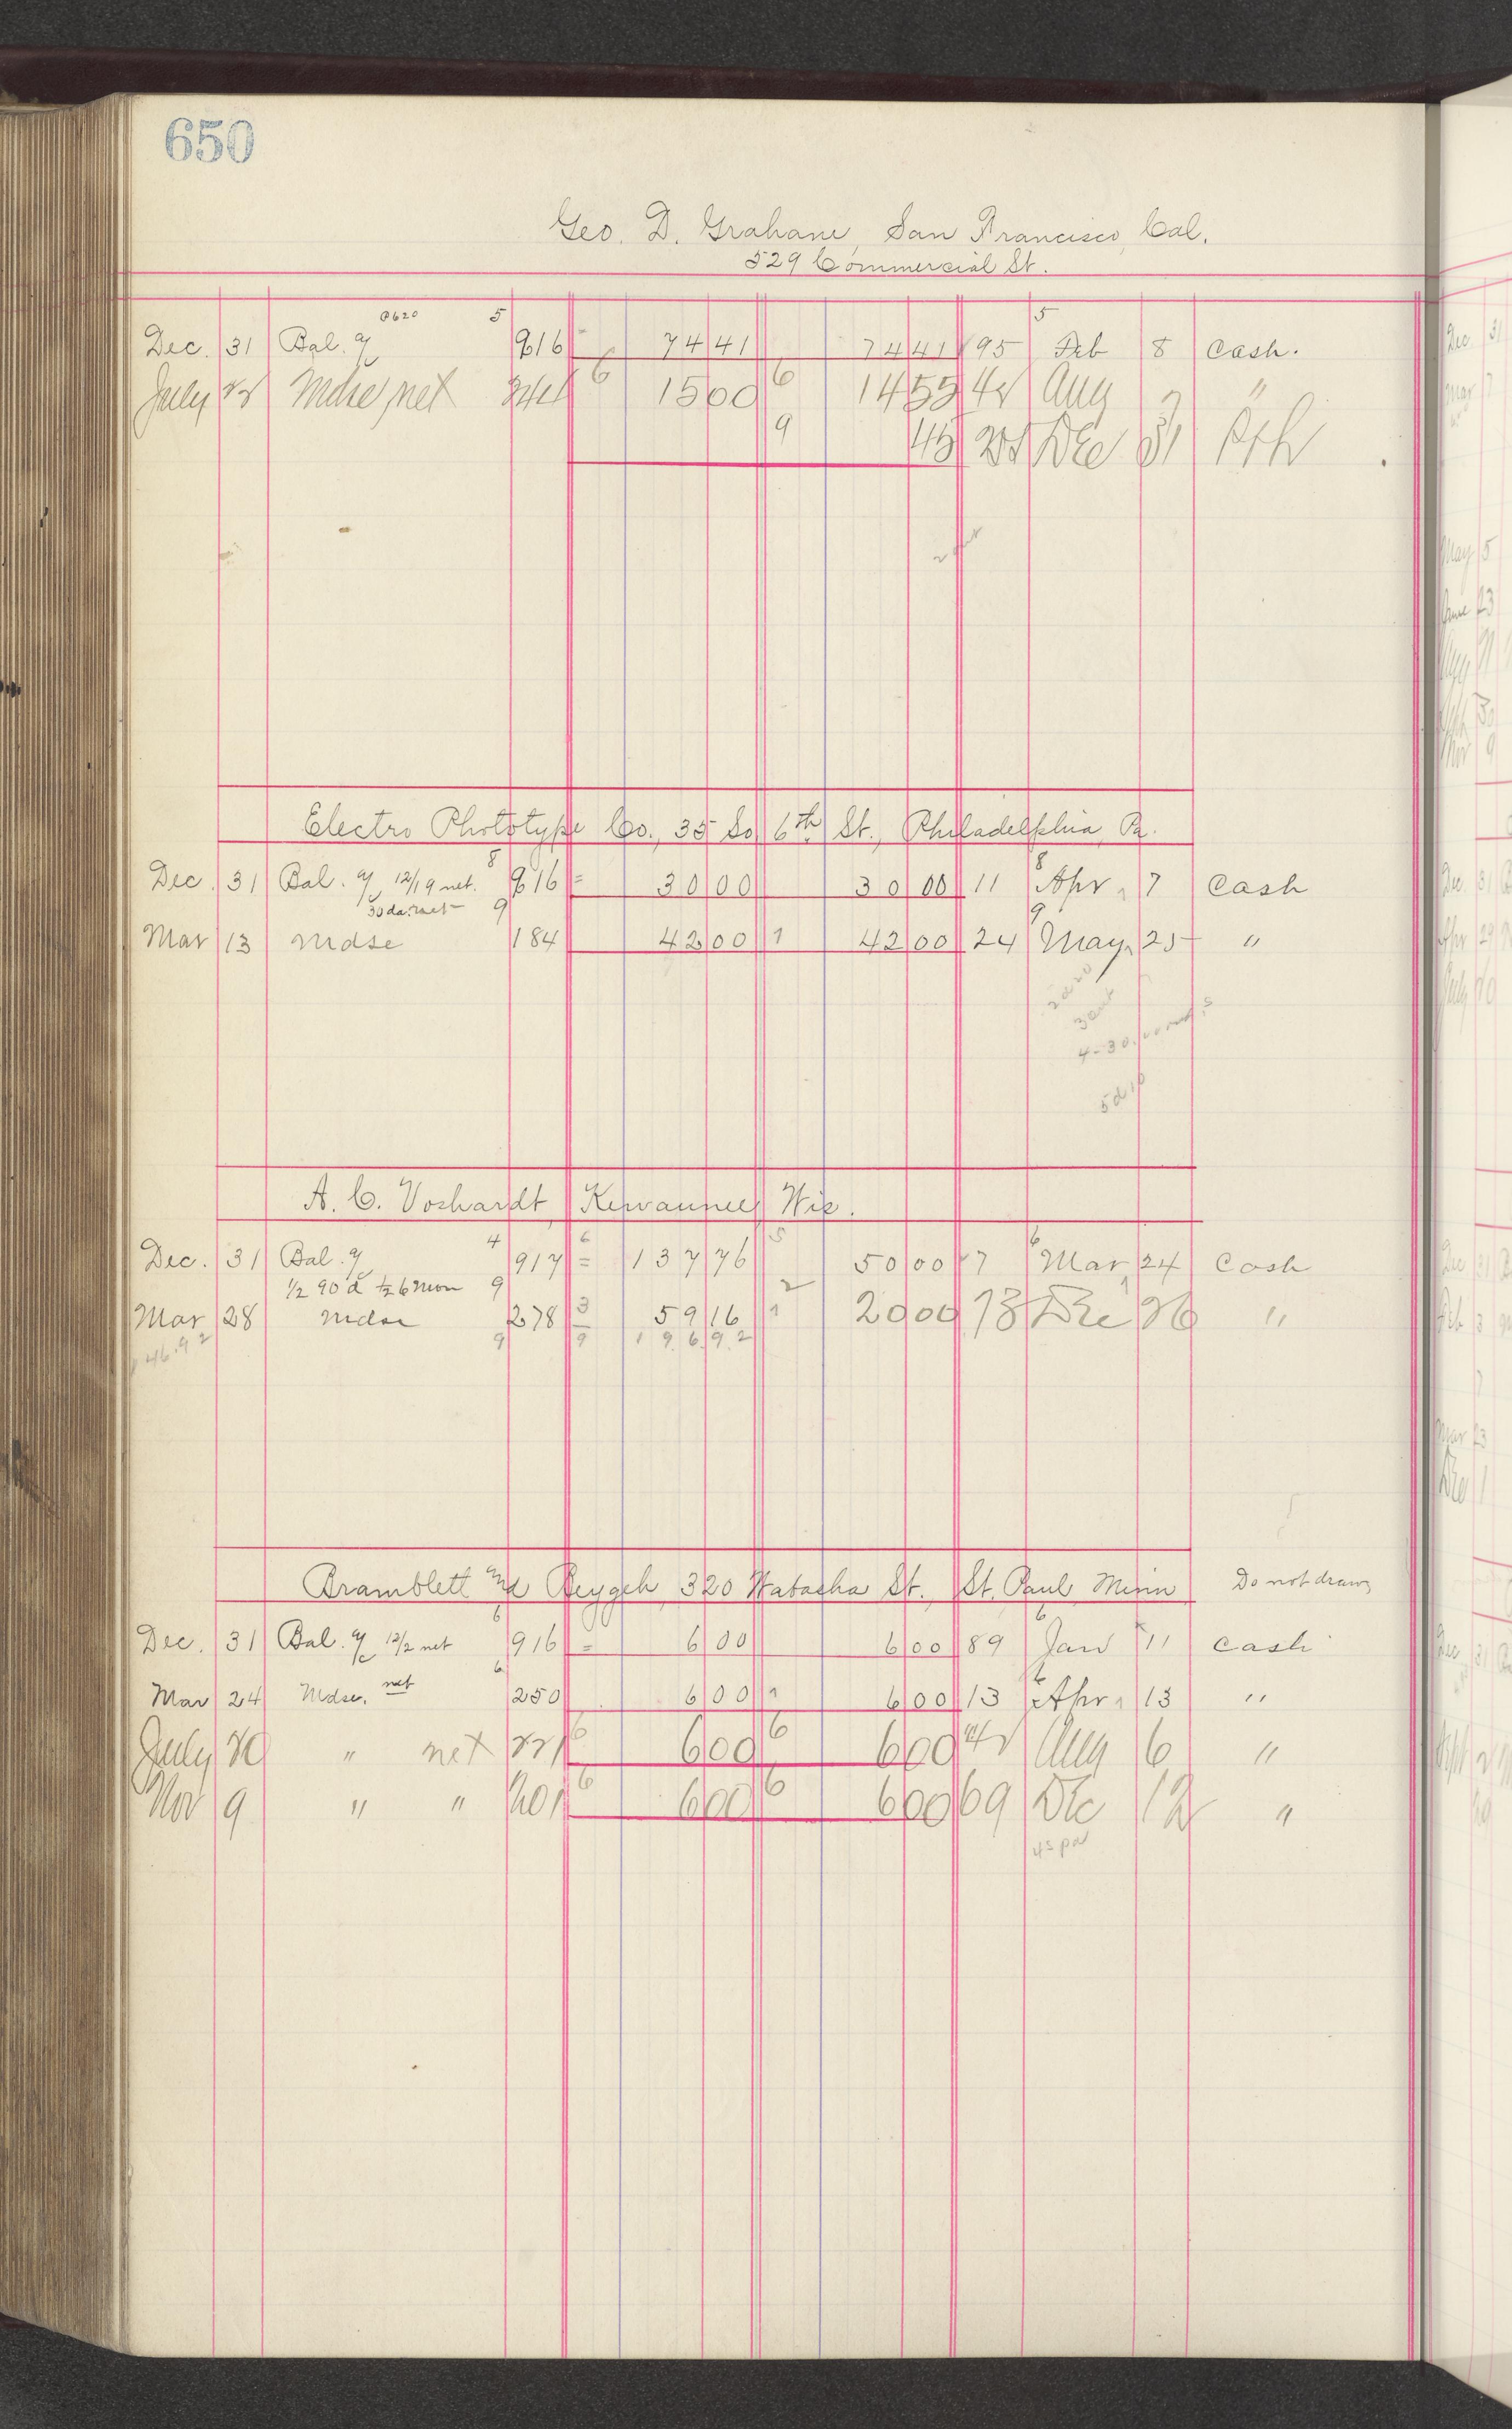 650
Geo. D. Grahame, San Francisco, Cal.
529 Commercial St.
Dec. 31 Bal. 916 74 41 74 41 95 Feb 8 Cash.
July Mdse net 6 15 00 6 14 55 Aug "
9 45 Dec 31
Electro Phototype Co., 35 So 6th St., Philadelphia, Pa.
8 8
Dec. 31 Bal. 12/19 net. 916 = 30 00 30 00 11 Apr. 7 Cash
30 da. net 9 9
Mar 13 Mdse 184 42 00 1 42 00 24 May 25 "
A. C. Voshardt Kewaunee, Wis.
4 6 5 6
Dec. 31 Bal. 917 = 137 76 50 00 7 Mar 24 Cash
1/2 90 d 1/2 6 mon 9 2
Mar 28 Mdse 278 3 59 16 1 20 00 73 Dec 26 "
146.92 9 9 196.92
Bramblett and Beygeh 320 Wabasha St. St. Paul, Minn Do not draw
Dec. 31 Bal. 12/2 net 916 = 6 00 6 00 89 Jan 11 Cash
Mar 24 Mdse. net 250 6 00 1 6 00 13 Apr. 13 "
July 20 " net 6 6 00 6 6 00 Aug 6 "
Nov 9 " " 6 6 00 6 6 00 69 Dec 12 "